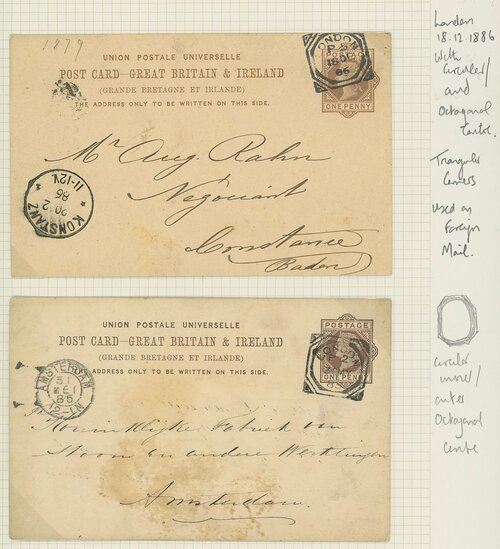 1879
UNION POSTALE UNIVERSELLE
POST CARD–GREAT BRITAIN & IRELAND
(GRANDE BRETAGNE ET IRLANDE)
THE ADDRESS ONLY TO BE WRITTEN ON THIS SIDE.
LONDON
18 DE
86
ONE PENNY
Mr. Aug. Rahn
Negociant
Constance
Baden
KONSTANZ
20 12
86
11-12V.
UNION POSTALE UNIVERSELLE
POST CARD–GREAT BRITAIN & IRELAND
(GRANDE BRETAGNE ET IRLANDE)
ADDRESS ONLY TO BE WRITTEN ON THIS SIDE.
POSTAGE
LONDON
ONE PENNY
AMSTERDAM
31
MEI
86
12-1N
Koninklijke Fabriek van
Stoom en andere Werktuigen
Amsterdam.
London
18.12.1886
With
Circular/
and
Octagonal
Centre.
Triangular
Corners
Used on
Foreign
Mail.
circular
inner/
outer
Octagonal
centre